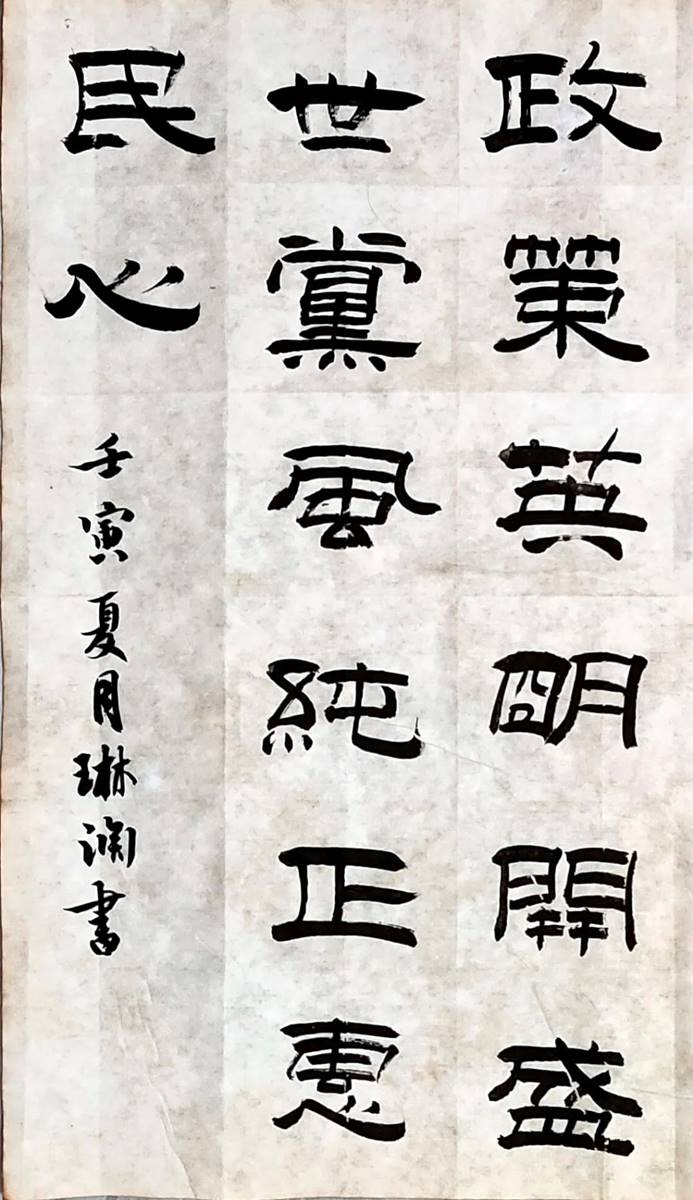 政策英明開盛
世黨風純正惠
民心
壬寅夏月琳渊書